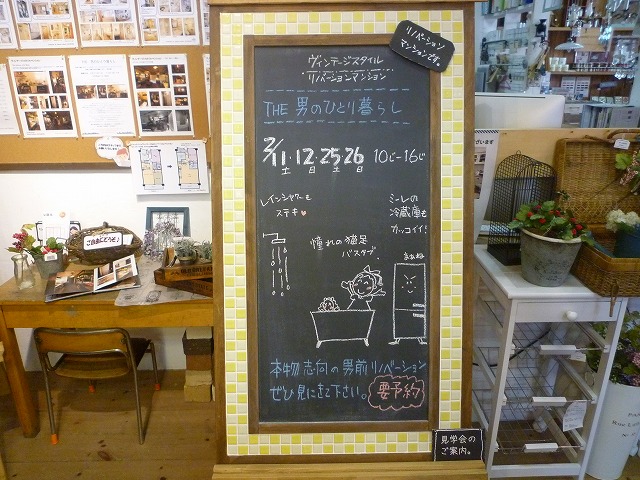 リノベーション
マンションです。
ヴィンテージスタイル
リノベーションマンション
THE 男のひとり暮らし
2/11・12・25・26 10じ-16じ
土 日 土 日
レインシャワーも
ステキ
ミーレの
冷蔵庫も
カッコイイ!
憧れの猫足
バスタブ
本物志向の男前リノベーション
ぜひ見にきて下さい。
要予約
見学会の
ご案内。
ご自由にどうぞ♪